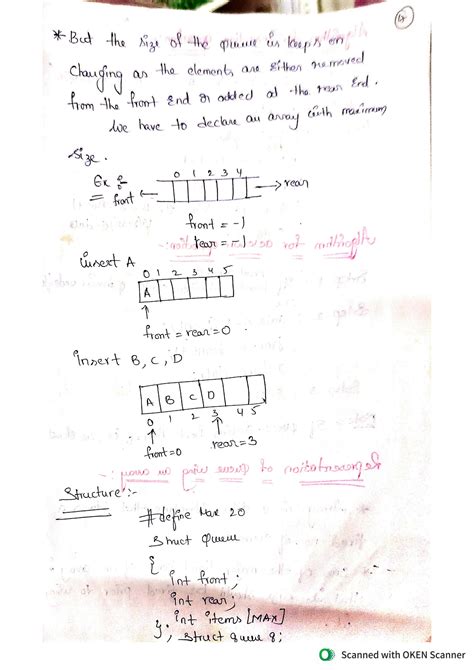 4
* But the size of the queue is keeps on
changing as the elements are either removed
from the front end or added at the rear end.
We have to declare an array with maximum
size.
Ex :-
0 1 2 3 4
front
rear
front = -1
rear = -1
insert A
0 1 2 3 4 5
A
front = rear = 0
Insert B, C, D
A B C D
0 1 2 3 4 5
front=0
rear=3
Structure :-
#define Max 20
Struct queue
{
int front;
int rear;
int items [MAX]
}; struct queue q;
Scanned with OKEN Scanner